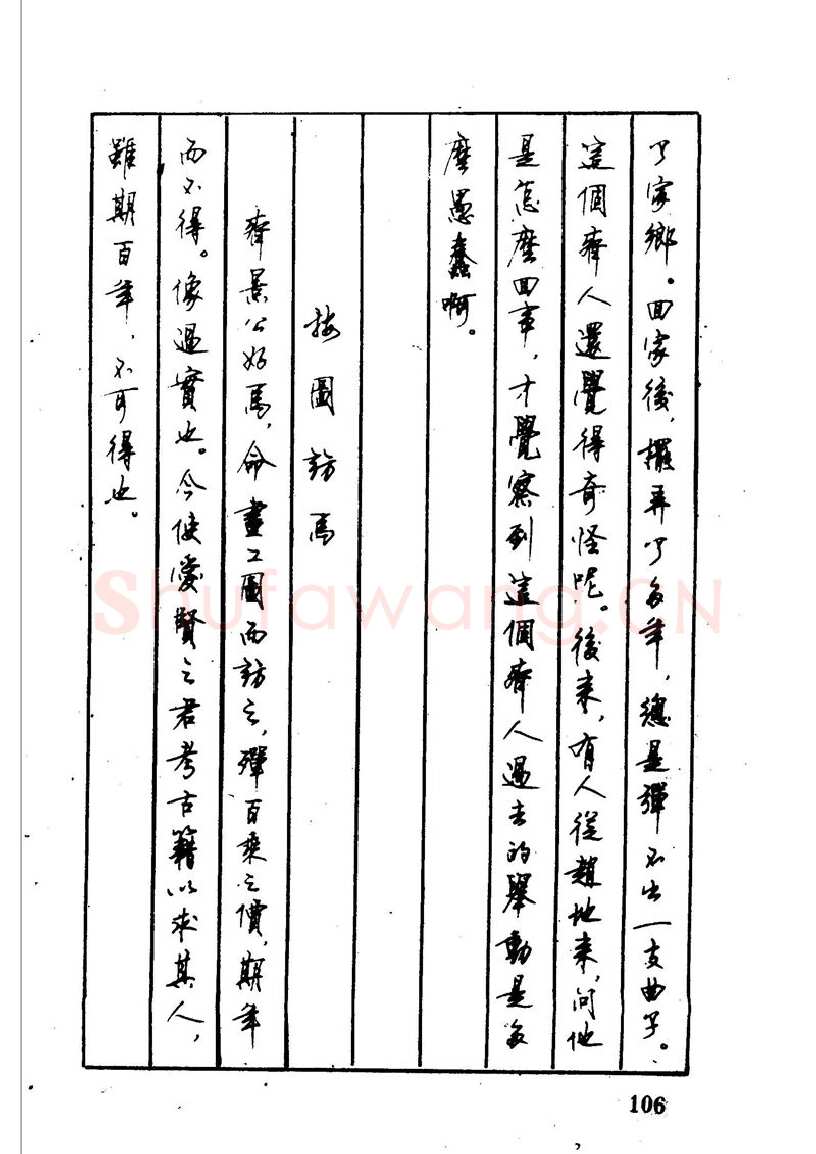 了家鄉。回家後，擺弄了多年，總是彈不出一支曲子。
這個齊人還覺得奇怪呢。後来，有人從趙地来，问他
是怎麼回事，才覺察到這個齊人過去的舉動是多
麼愚蠢啊。
按圖訪馬
齊景公好馬，命畫工圖而訪之，殫百乘之價，期年
而不得。像過實也。今使愛賢之君考古籍以求其人，
雖期百年，不可得也。
106
Shufawang.CN